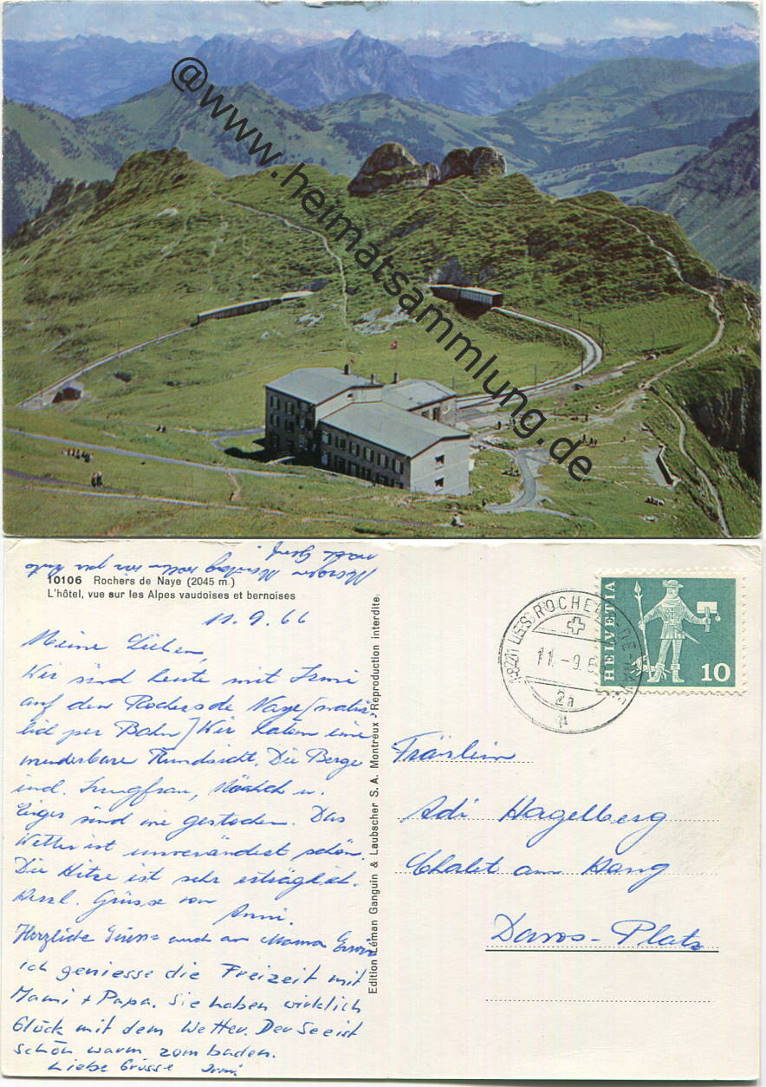 @www.heimatsammlung.de
10106 Rochers de Naye (2045 m)
L'hôtel, vue sur les Alpes vaudoises et bernoises
11.9.66
Meine Lieben,
Wir sind heute mit Irmi
auf den Rochers de Naye (natür-
lich per Bahn) Wir haben eine
wunderbare Rundsicht. Die Berge
incl. Jungfrau, Mönch u.
Eiger sind wie gestochen. Das
Wetter ist unverändert schön.
Die Hitze ist sehr erträglich.
Herzl. Grüsse von
Anni.
Herzliche Grüsse auch an Mama Erwin
ich geniesse die Freizeit mit
Mami + Papa. Sie haben wirklich
Glück mit dem Wetter. Der See ist
schön warm zom baden.
Liebe Grüsse Irmi
Morgen Dienstag wollen wir zum
Edition Léman Ganguin & Laubscher S.A. Montreux - Reproduction interdite.
ROCHERS-DE-NAYE
11.-9.6
2a
HELVETIA
10
Fräulein
Adi Hagelberg
Chalet am Hang
Davos-Platz